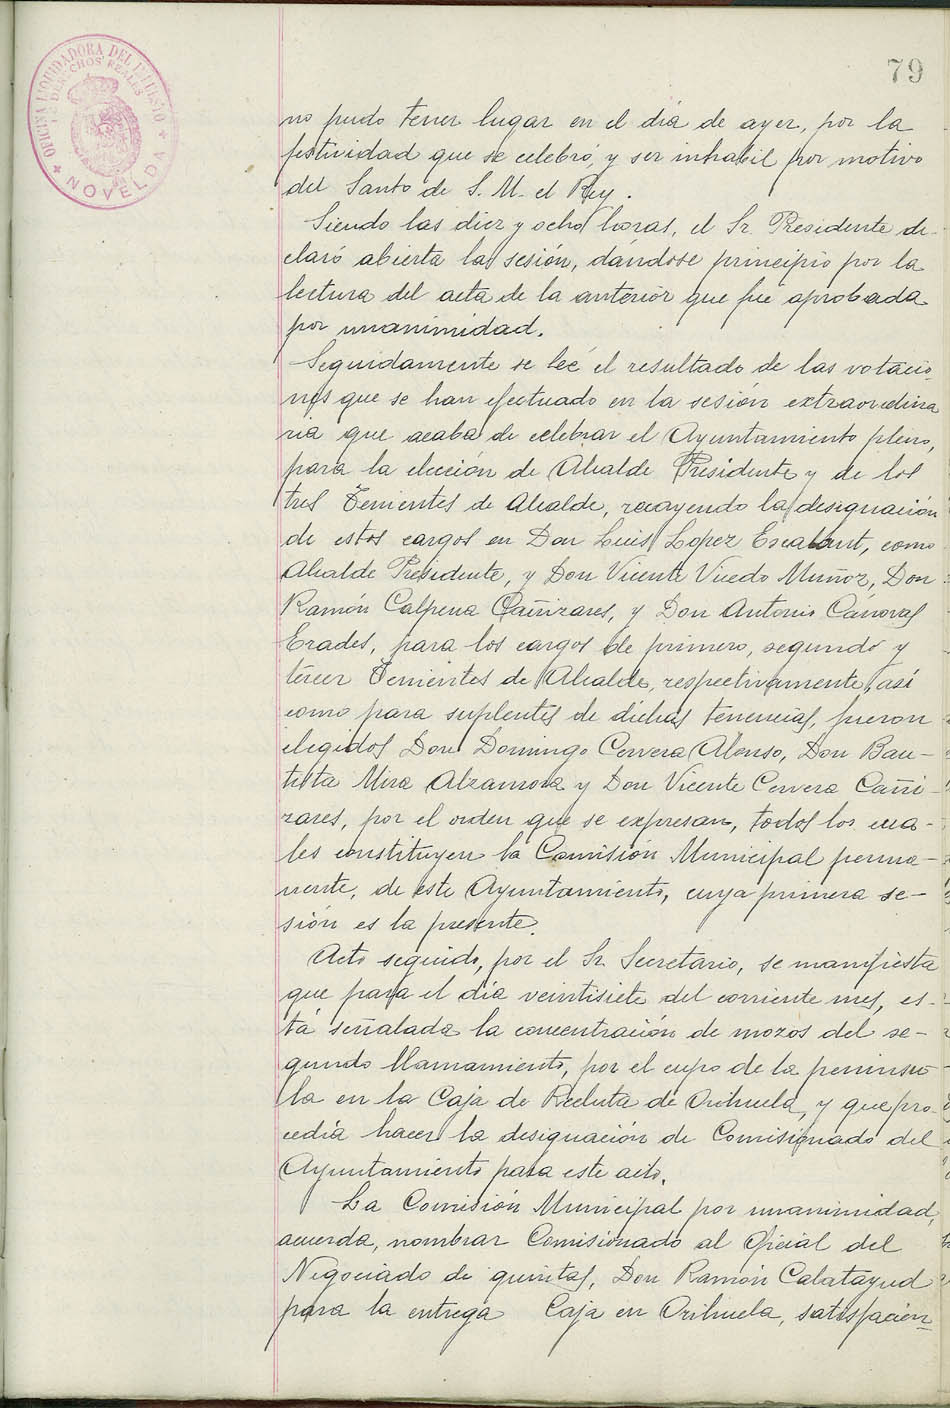 79
OFICINA LIQUIDADORA DEL IMPUESTO
DE DERECHOS REALES
NOVELDA
no pudo tener lugar en el día de ayer, por la
festividad que se celebró, y ser inhabil por motivo
del Santo de S. M. el Rey.
Siendo las diez y ocho horas, el Sr. Presidente de-
claró abierta la sesión, dándose principio por la
lectura del acta de la anterior que fué aprobada
por unanimidad.
Seguidamente se leé el resultado de las votacio-
nes que se han efectuado en la sesión extraordina
ria que acaba de celebrar el Ayuntamiento pleno,
para la elección de Alcalde Presidente y de los
tres Tenientes de Alcalde, recayendo la designación
de estos cargos en Don Luis Lopez Escalant, como
Alcalde Presidente, y Don Vicente Vicedo Muñoz, Don
Ramón Calpena Cañizares, y Don Antonio Cánovas
Erades, para los cargos de primero, segundo y
tercer Tenientes de Alcalde, respectivamente, así
como para suplentes de dichas tenencias, fueron
elegidos Don Domingo Cervera Alonso, Don Bau-
tista Mira Alzamora y Don Vicente Cervera Cañi-
zares, por el orden que se expresan, todos los cua-
les constituyen la Comisión Municipal perma-
nente, de este Ayuntamiento, cuya primera se-
sión es la presente.
Acto seguido, por el Sr. Secretario, se manifiesta
que para el día veintisiete del corriente mes, es-
tá señalada la concentración de mozos del se-
gundo llamamiento, por el cupo de la peninsu-
la en la Caja de Recluta de Orihuela, y que pro-
cedia hacer la designación de Comisionado del
Ayuntamiento para este acto.
La Comisión Municipal por unanimidad,
acuerda, nombrar Comisionado al Oficial del
Negociado de quintas, Don Ramón Calatayud
para la entrega Caja en Orihuela, satisfacien-